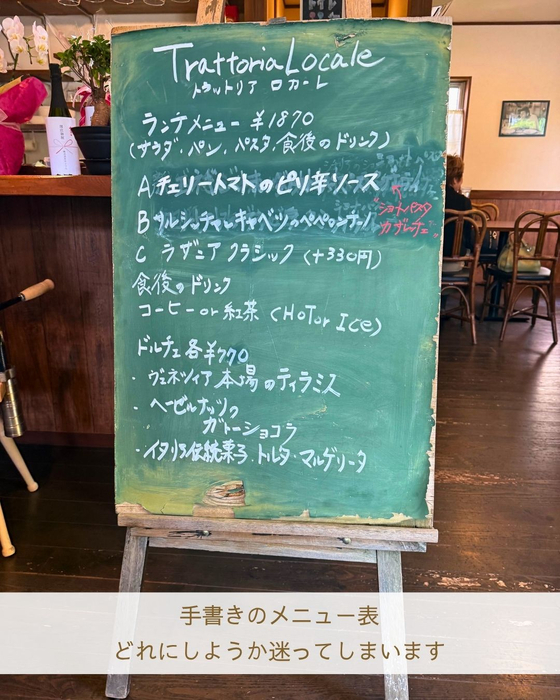 Trattoria Locale
トラットリア ロカーレ
ランチメニュー ¥1870
(サラダ・パン、パスタ、食後のドリンク)
A チェリートマトのピリ辛ソース
ショートパスタ
カザレッチェ
B サルシッチャとキャベツのペペロンチーノ
C ラザニア クラシック (+330円)
食後のドリンク
コーヒー or 紅茶 (HOT or ICe)
ドルチェ 各¥770
・ヴェネツィア 本場のティラミス
・ヘーゼルナッツの
ガトーショコラ
・イタリア伝統菓子、トルタ・マルゲリータ
手書きのメニュー表
どれにしようか迷ってしまいます